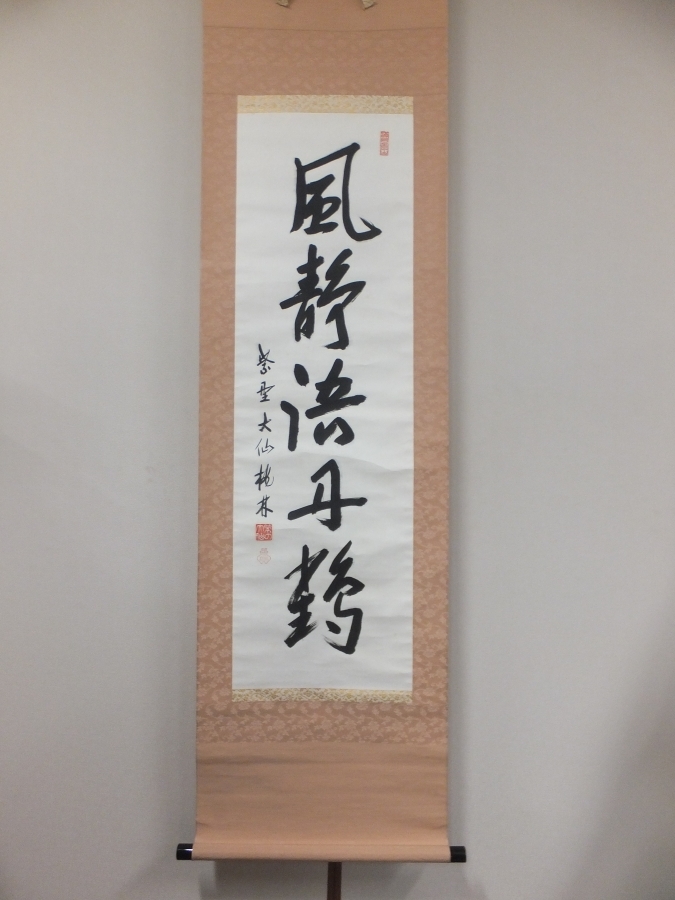 風静語丹鶴
紫野大仙桃林